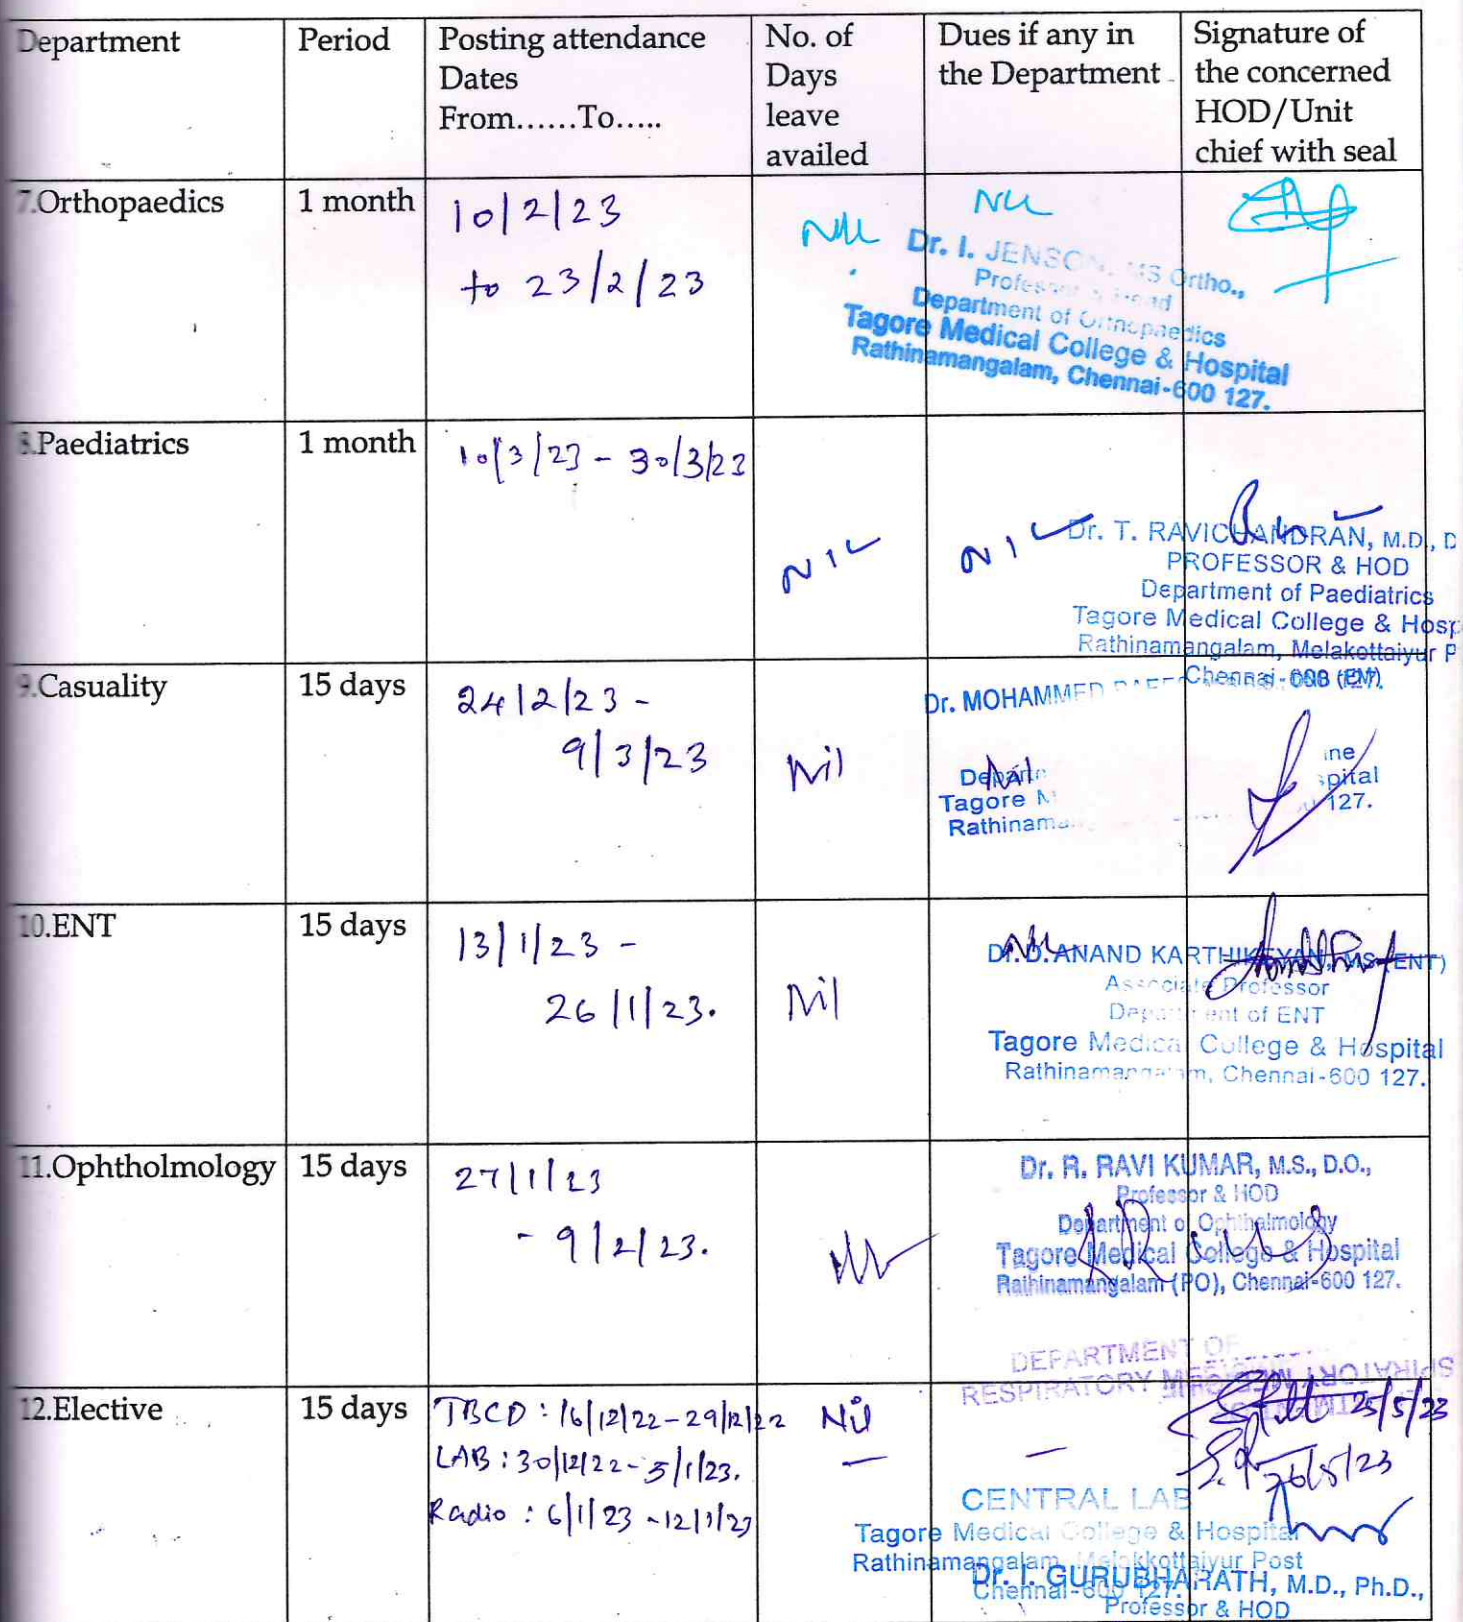 Department Period Posting attendance Dates From......To..... No. of Days leave availed Dues if any in the Department Signature of the concerned HOD/Unit chief with seal
7.Orthopaedics 1 month 10/2/23
to 23/2/23
Nil Nil
Dr. I. JENSON, MS Ortho.,
Professor & Head
Department of Orthopaedics
Tagore Medical College & Hospital
Rathinamangalam, Chennai-600 127.
8.Paediatrics 1 month 10/3/23 - 30/3/23
NIL NIL
Dr. T. RAVICHANDRAN, M.D., D
PROFESSOR & HOD
Department of Paediatrics
Tagore Medical College & Hosp
Rathinamangalam, Melakottaiyur P
Chennai-
9.Casuality 15 days 24/2/23 -
9/3/23
Nil Nil
Dr. MOHAMMED (EM)
Departm ine
Tagore M spital
Rathinama 127.
10.ENT 15 days 13/1/23 -
26/1/23.
Nil Nil
Dr. D. ANAND KARTHIKEYAN, MS (ENT)
Associate Professor
Department of ENT
Tagore Medical College & Hospital
Rathinamangalam, Chennai-600 127.
11.Ophtholmology 15 days 27/1/23
- 9/2/23.
Dr. R. RAVI KUMAR, M.S., D.O.,
Professor & HOD
Department of Ophthalmology
Tagore Medical College & Hospital
Rathinamangalam (PO), Chennai-600 127.
DEPARTMENT OF
RESPIRATORY MEDICINE
12.Elective 15 days TBCD : 16/12/22-29/12/22 Nil 25/5/23
LAB : 30/12/22-5/1/23. — — 26/5/23
Radio : 6/1/23 - 12/1/23
CENTRAL LAB
Tagore Medical College & Hospital
Rathinamangalam, Melakkottaiyur Post
Chennai-600 127.
Dr. I. GURUBHARATH, M.D., Ph.D.,
Professor & HOD